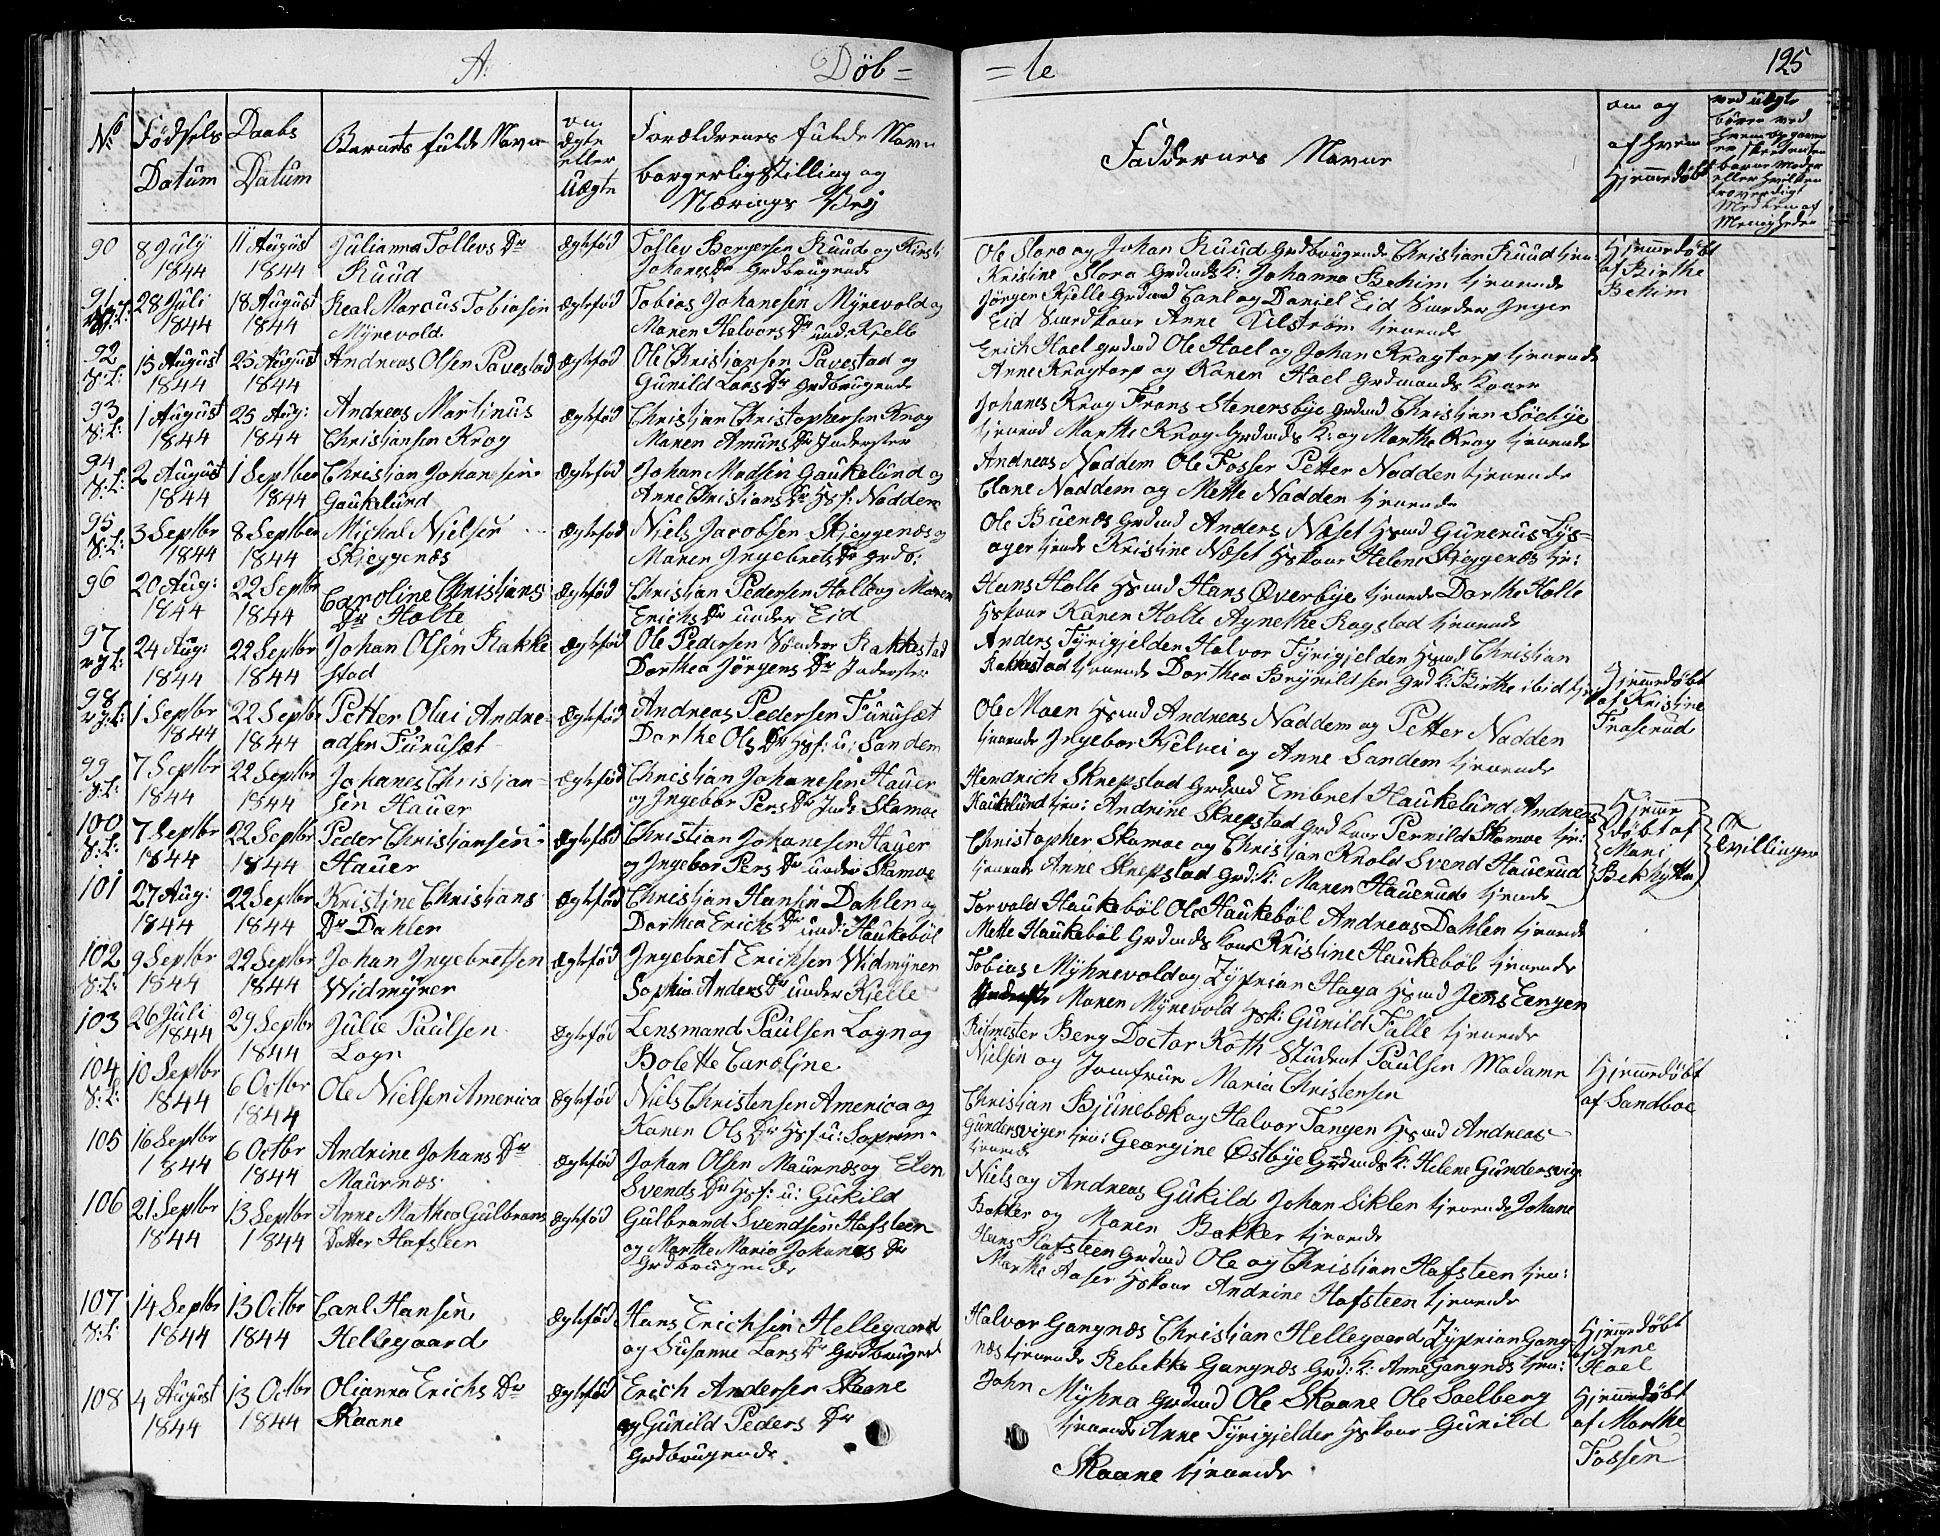 A: Døb=
=te 125
No Fødsels Datum
Daabs Datum
Barnets fulde Navn
om ægte eller uægte
Forældrenes fulde Navn borgerlig Stilling og Nærings Vej
Faddernes Navne
om og af hvem hjemmedøbt
90 8 July 1844
11 August 1844
Julianna Tollevs Dr Ruud
Ægtefød
Tollev Bergersen Ruud og Kirsti
Johanes Dr Grdbrugende
Ole Slora og Johan Ruud Grdbrugende Christian Ruud tjen
Kristine Slora Grdmds K: Johanna Behim tjenende
Hjemmedøbt af Birthe Behim
91 28 Juli 1844
18 August 1844
Real Marcus Tobiasen Myrevold
Ægtefød
Tobias Johanesen Myrevold og
Maren Halvors Dr und. Kjelle
Jørgen Kjelle Grdmd Carl og Daniel Eid Inger
Eid Anne tjenende
92 S:L: 15 August 1844
25 August 1844
Andreas Olsen Pavestad
Ægtefød
Ole Christiansen Pavestad og
Gunild Lars Dr Grdbrugende
Erich Hael Grdmd Ole Hael og Johan Kragtorp tjenende
Anne Kragtorp og Karen Hael Grdmands Koner
93 S:L: 1 August 1844
25 Aug: 1844
Andreas Martinus Christiansen Krog
Ægtefød
Christian Christophersen Krog
Maren Amuns Dr Inderster
Johanes Krog Frans Stenersbye Grdmd Christian Søebye
tjenend Marthe Krog Grdmds K: og Marthe Krog tjenende
94 S:L: 2 August 1844
1 Septber 1844
Christian Johanesen Gaukelund
Ægtefød
Johan Madsen Gaukelund og
Anne Christians Dr Hsf: Naddem
Andreas Naddem Ole Fosser Petter Nadden tjenende
Clane Naddem og Mette Nadden tjenende
95 S:L: 3 Septbr 1844
8 Septber 1844
Michal Nielsen Skjeggenæs
Ægtefød
Niels Jacobsen Skjeggenæs og
Maren Ingebrets Dr Grdb:
Ole Buenæs Grdmd Anders Næset Hsmd Gunerus Lys=
ager tjende Kristine Næset Hskone Helene Skjeggenæs tje:
96 20 Aug: 1844
22 Septbr 1844
Caroline Christians Dr Holte
Ægtefød
Christian Pedersen Holte og Maren
Erichs Dr under Eid
Hans Holte Hsmd Hans Øverbye tjenende Dorthe Holte
Hskone Karen Holte Agnethe Rogstad tjenende
97 24 Aug: 1844
22 Septbr 1844
Johan Olsen Rakkestad
Ægtefød
Ole Pedersen Søndre Rakkestad
Dorthea Jørgens Dr Inderster
Anders Tyrigjelden Halvor Tyrigjelden Hsmd Christian
Rakkestad tjenende Dorthea Brynildsen Grd K: Birthe ibid tjen
98 1 Septbr 1844
22 Septbr 1844
Petter Olai Andreadsen Furusæt
Ægtefød
Andreas Pedersen Furusæt
Dorthe Ols Dr Hsf: u: Sandem
Ole Moen Hsmd Andreas Naddem og Petter Nadden
tjenende Ingebor Kjelvei og Anne Sandem tjenende
Hjemmedøbt af Kristine Fraserud
99 S:L: 7 Septbr 1844
22 Septbr 1844
Johanes Christiansen Hauer
Ægtefød
Christian Johanesen Hauer
og Ingebor Pers Dr Inds: Skamoe
Hendrich Sknepstad Grdmd Embret Haukelund Andreas
Haukelund tjen: Andrine Sknepstad Grd Kone Pernild Skamoe tje:
Hjemmedøbt af Mari Bekhytten
Tvillinger
100 S:L: 7 Septbr 1844
22 Septbr 1844
Peder Christiansen Hauer
Ægtefød
Christian Johanesen Hauer
og Ingebor Pers Dr under Skamoe
Christopher Skamoe og Christian Knold Svend Hauerud
tjenende Anne Sknepstad Grd: K: Maren Hauerud tjende
101 27 Aug: 1844
22 Septbr 1844
Kristine Christians Dr Dahlen
Ægtefød
Christian Hansen Dahlen og
Dorthea Erichs Dr und: Haukebøl
Torvald Haukebøl Ole Haukebøl Andreas Dahlen tjenende
Mette Haukebøl Grdmds Kone Kristine Haukebøl tjenende
102 S:L: 9 Septbr 1844
22 Septbr 1844
Johan Ingebretsen Widmyrer
Ægtefød
Ingebret Erichsen Widmyrer
Sophia Anders Dr under Kjelle
Tobias Myhrevold og Zyprian Haga Hsmd Jens Eengen
Maren Myrevold Hsk: Gunild Falle tjenende
103 26 Juli 1844
29 Septbr 1844
Julie Paulsen Logn
Ægtefød
Lensmand Paulsen Logn og
Bolette Caroline
Ritmester Berg Doctor Roth Student Paulsen Madame
Nielsen og Jomfrue Maria Christensen
104 S:L: 10 Septbr 1844
6 Octbr 1844
Ole Nielsen America
Ægtefød
Niels Christensen America og
Karen Ols Dr Hsf: u: Soprim
Christian Bjunebæk og Halvor Tangen Hsmd Andreas
Gundersviger tjen: Georgine Østbye Grdmds K: Helene Gundersvig
tjenende
Hjemmedøbt af Sandboe
105 16 Septbr 1844
6 Octbr 1844
Andrine Johans Dr Maurnæs
Ægtefød
Johan Olsen Maurnæs og Elen
Svends Dr Hsf: u: Gukild
Niels og Andreas Gukild Johan Siklen tjenende Johane
Bakker og Maren Bakker tjenende
106 21 Septbr 1844
13 Septbr 1844
Anne Mathea Gulbrans Datter Hafsteen
Ægtefød
Gulbrand Svendsen Hafsteen
og Marthe Maria Johanes Dr
Grdbrugende
Hans Hafsteen Grdmd Ole og Christian Hafsteen tjen:
Marthe Aaser Hskone Andrine Hafsteen tjenende
107 S:L: 14 Septbr 1844
13 Octbr 1844
Carl Hansen Hellegaard
Ægtefød
Hans Erichsen Hellegaard
og Susanne Lars Dr Grdbrugend
Halvor Gangnæs Christian Hellegaard Zyprian Gang
næs tjenende Rebekka Gangnæs Grd: K: Anne Gangnæs tjen:
Hjemmedøbt af Anne Hael
108 4 August 1844
13 Octbr 1844
Olianna Erichs Dr Skaane
Ægtefød
Erich Andersen Skaane
og Gunild Peders Dr
Grdbrugende
John Myhra Grdmd Ole Skaane Ole Saelberg
tjenende Anne Tyrigjelder Hskone Gunild
Skaane tjenende
Hjemmedøbt af Marthe Fossen